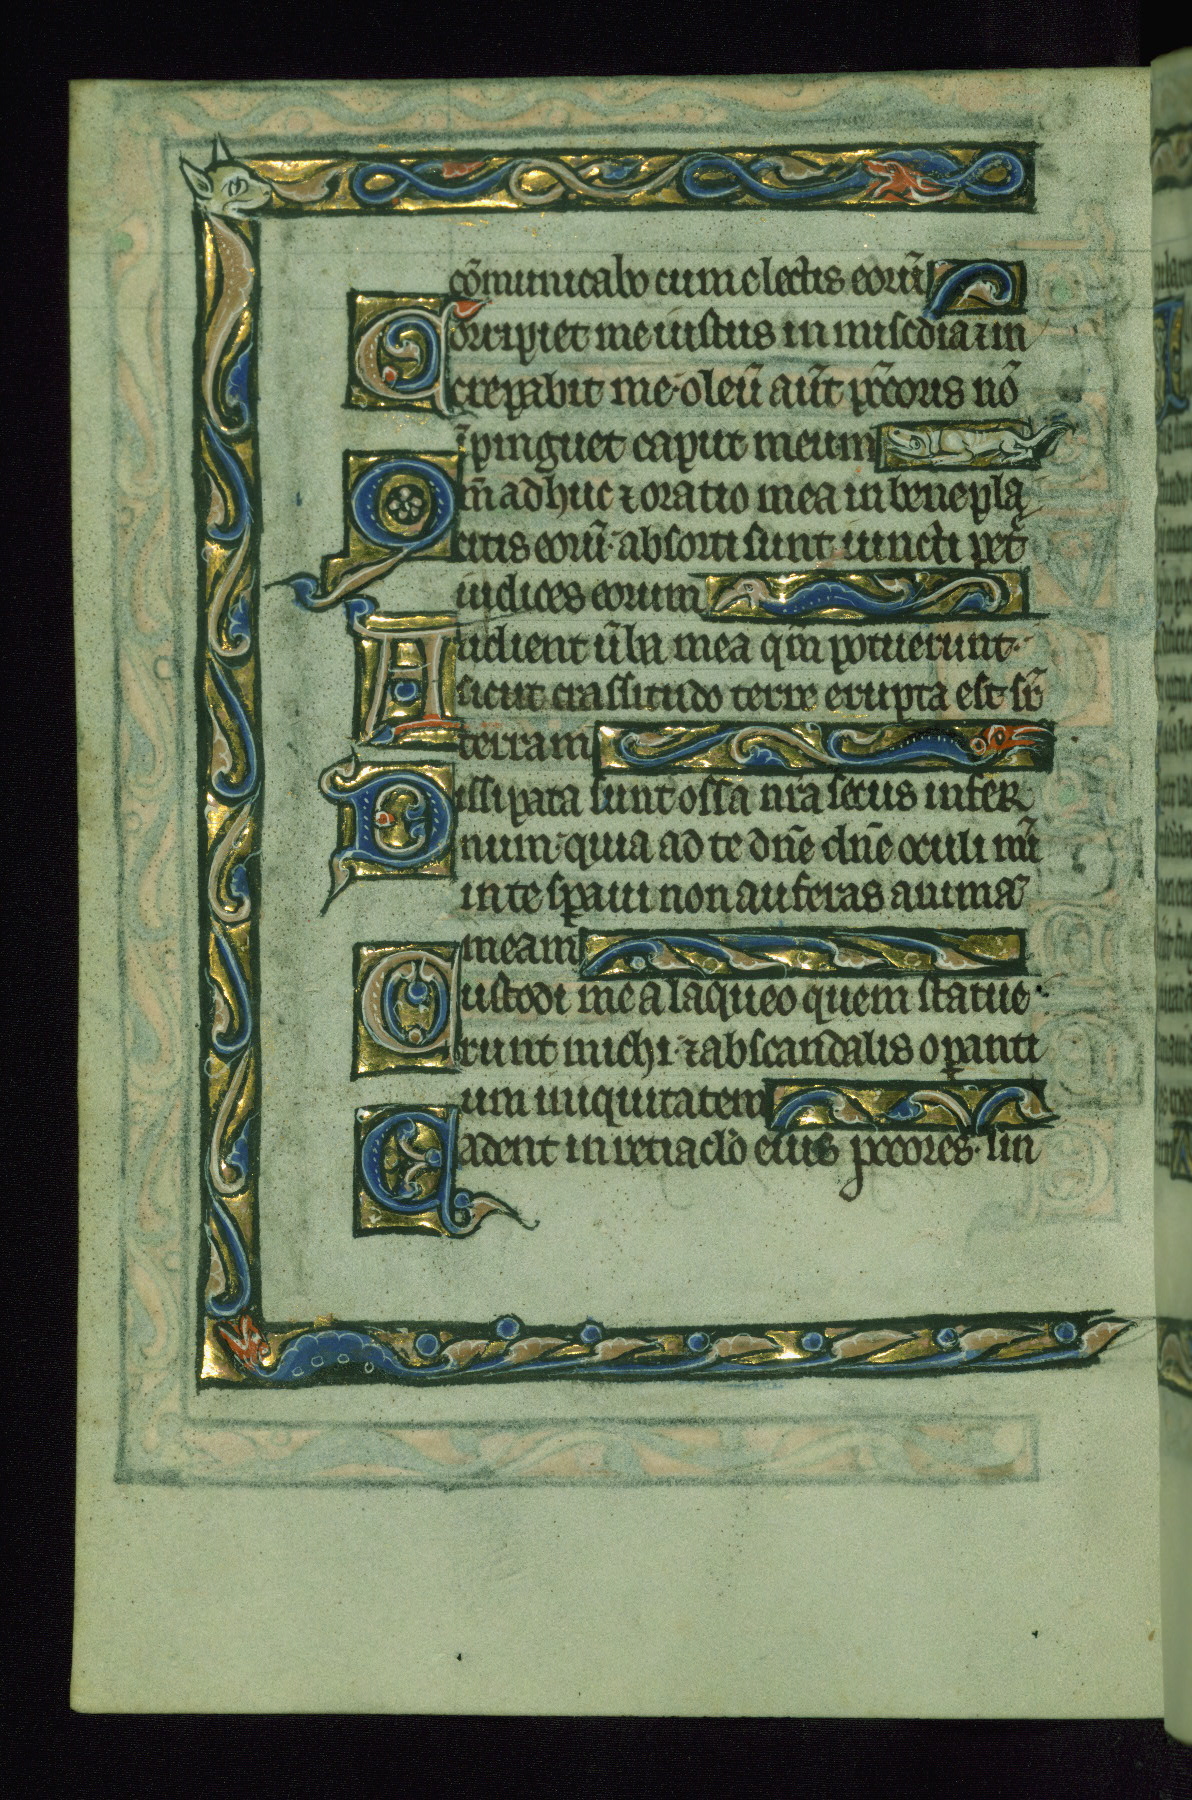 cōmunicabo cum electis eorū
Corripiet me iustus in mis̄cdia ⁊ in
crepabit me· oleū aūt pc̄coris nō
īpinguet caput meum
Qm̄ adhuc ⁊ oratio mea in benepla
citis eorū· absorti sunt iuncti pet̄
iudices eorum
Audient ūba mea qm̄ potuerunt·
sicut crassitudo terre erupta est sr̄
terram
Dissipata sunt ossa nr̄a secus infer
num· quia ad te dn̄e dn̄e oculi mī
in te sp̄aui non auferas animā
meam
Custodi me a laqueo quem statue·
runt michi· ⁊ ab scandalis op̄anti
um iniquitatem
Cadent in retiaclo̕ eius pc̄cores· sin